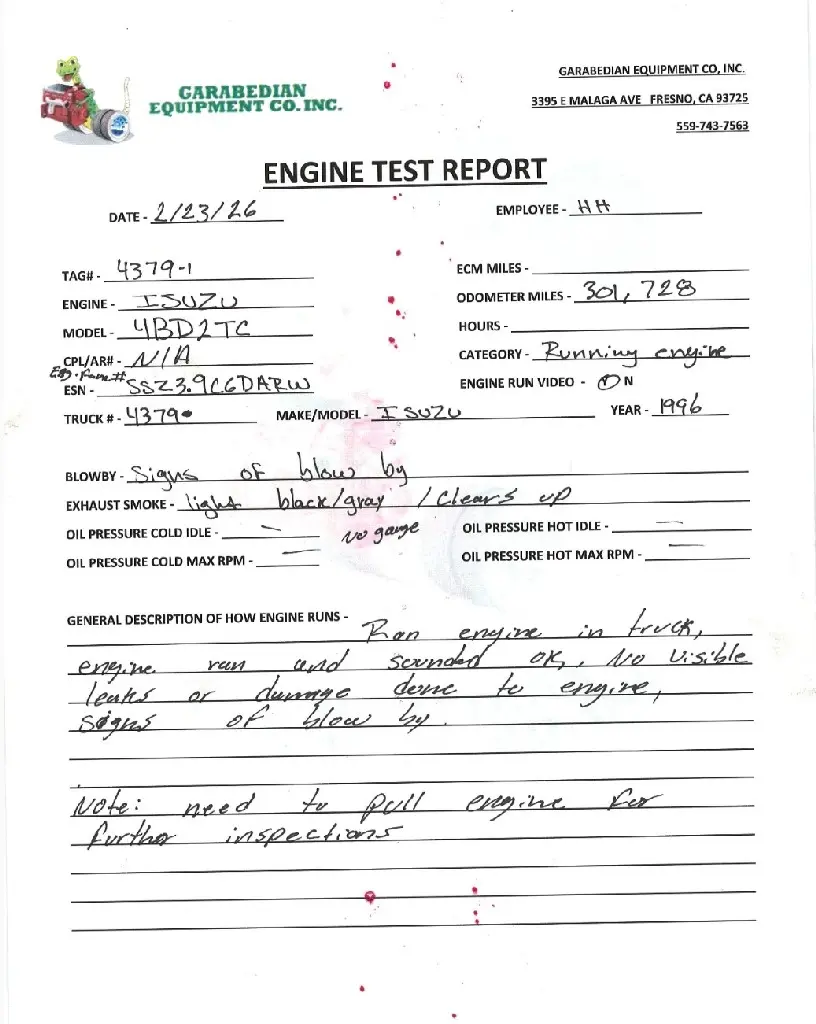 GARABEDIAN
EQUIPMENT CO. INC.
GARABEDIAN EQUIPMENT CO, INC.
3395 E MALAGA AVE FRESNO, CA 93725
559-743-7563
ENGINE TEST REPORT
DATE - 2/23/26
EMPLOYEE - HH
TAG# - 4379-1
ECM MILES -
ENGINE - ISUZU
ODOMETER MILES - 301,728
MODEL - 4BD2TC
HOURS -
CPL/AR# - N/A
CATEGORY - Running engine
ESN - SSZ3.9C6DARW
ENGINE RUN VIDEO - Y N
TRUCK # - 4379
MAKE/MODEL - ISUZU
YEAR - 1996
BLOWBY - Signs of blow by
EXHAUST SMOKE - light black/gray / Clears up
OIL PRESSURE COLD IDLE - — No gauge
OIL PRESSURE HOT IDLE - —
OIL PRESSURE COLD MAX RPM - —
OIL PRESSURE HOT MAX RPM - —
GENERAL DESCRIPTION OF HOW ENGINE RUNS - Ran engine in truck,
engine ran and sounded OK, No visible
leaks or dammge done to engine,
signs of blow by.
Note: need to pull engine for
further inspections